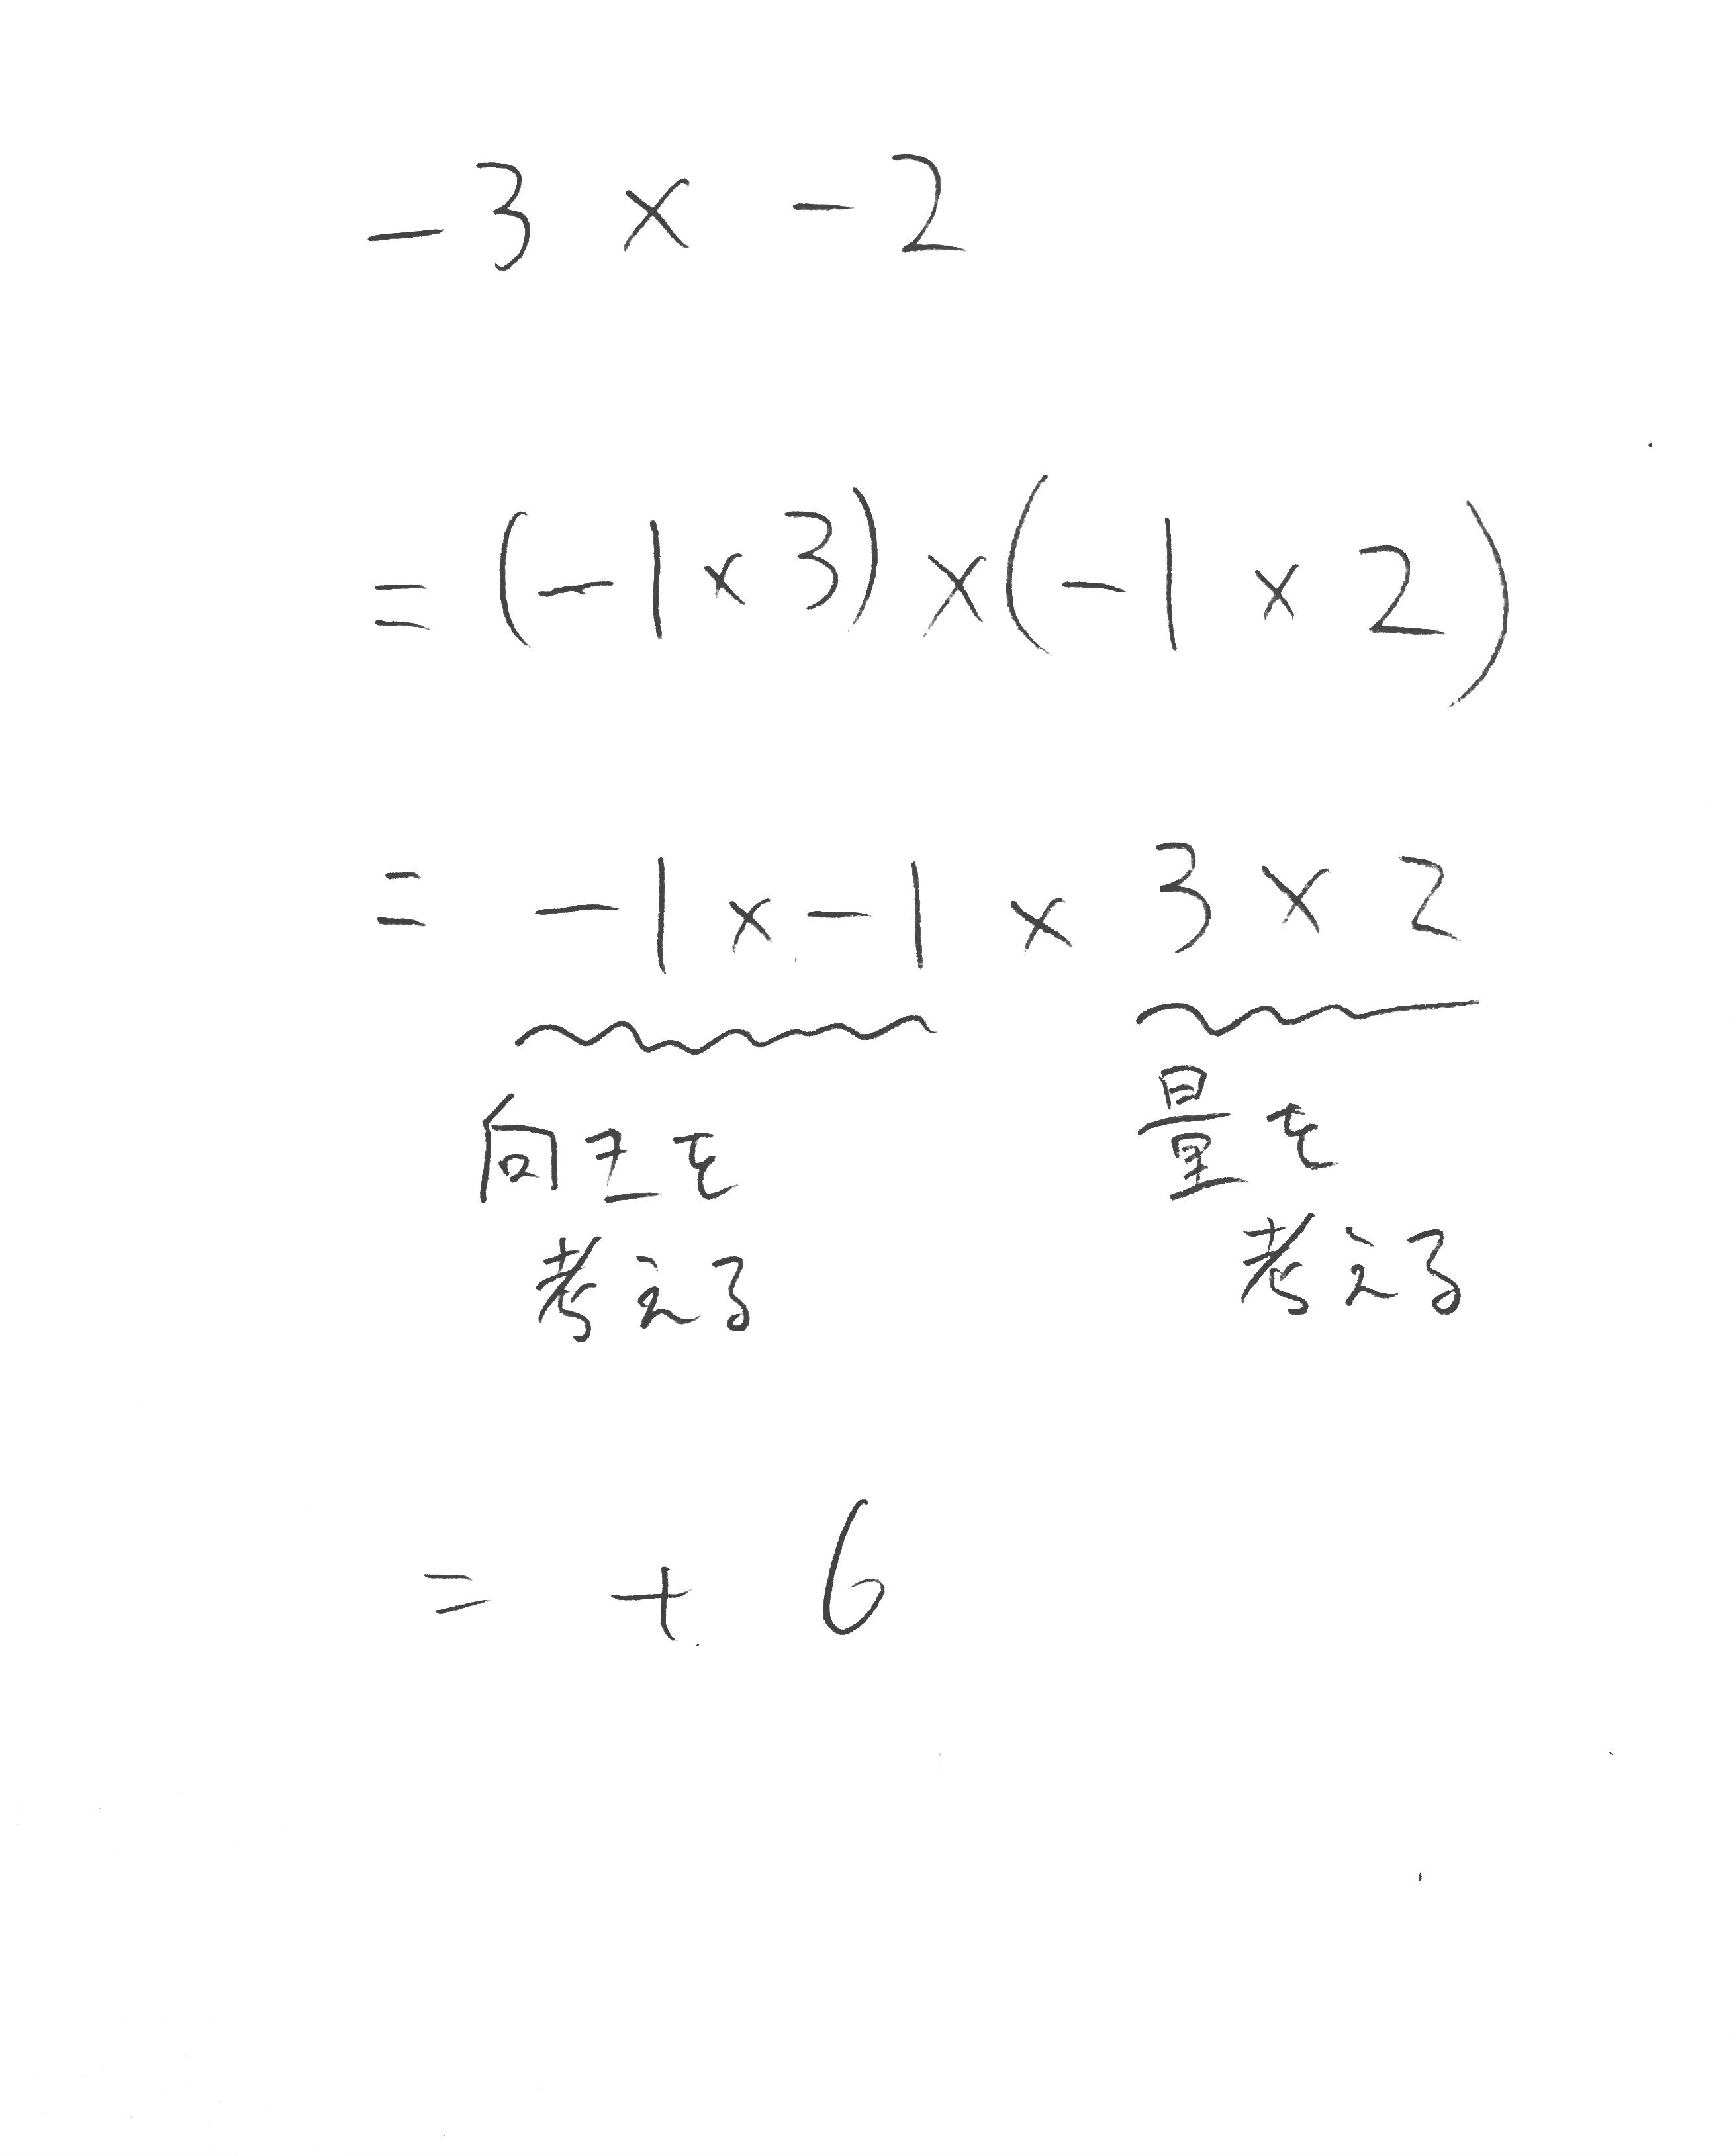 -3 × -2
= (-1 × 3) × (-1 × 2)
= -1 × -1 × 3 × 2
向きを 量を
考える 考える
= + 6